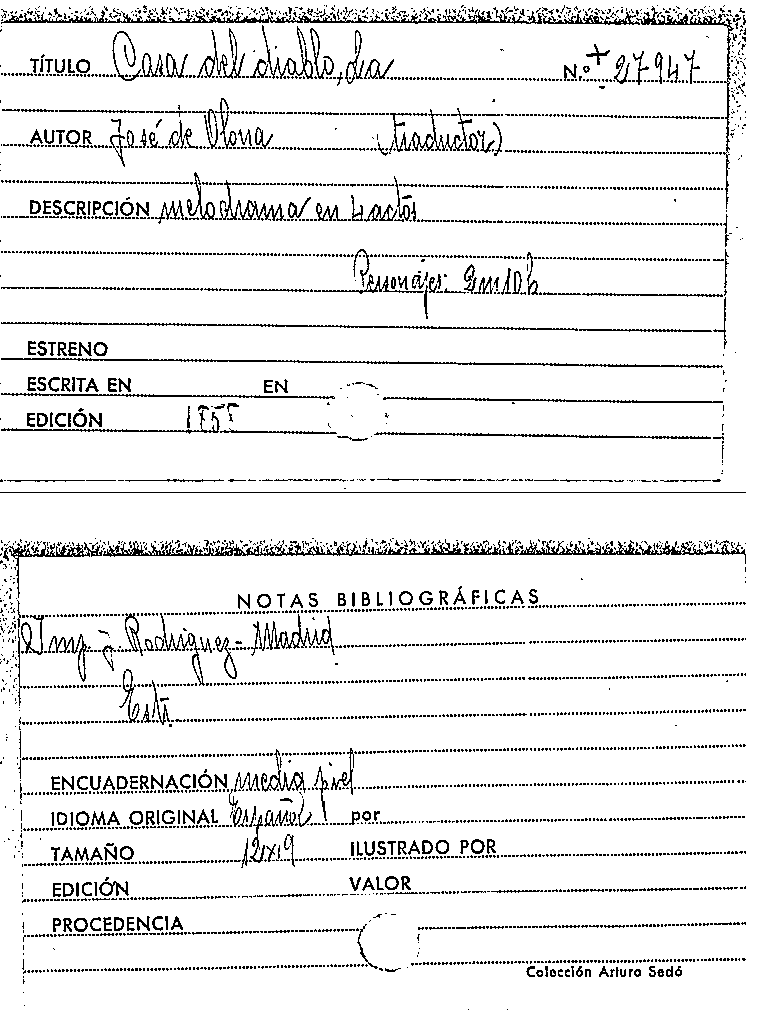 TÍTULO Casa del diablo, La N.º + 27947
AUTOR José de Olona (traductor)
DESCRIPCIÓN melodrama en 4 actos
Personajes: 2m10h
ESTRENO
ESCRITA EN EN
EDICIÓN 1855
NOTAS BIBLIOGRÁFICAS
Imp. J. Rodriguez - Madrid
ENCUADERNACIÓN media piel
IDIOMA ORIGINAL Español por
TAMAÑO 12x19 ILUSTRADO POR
EDICIÓN VALOR
PROCEDENCIA
Colección Arturo Sedó